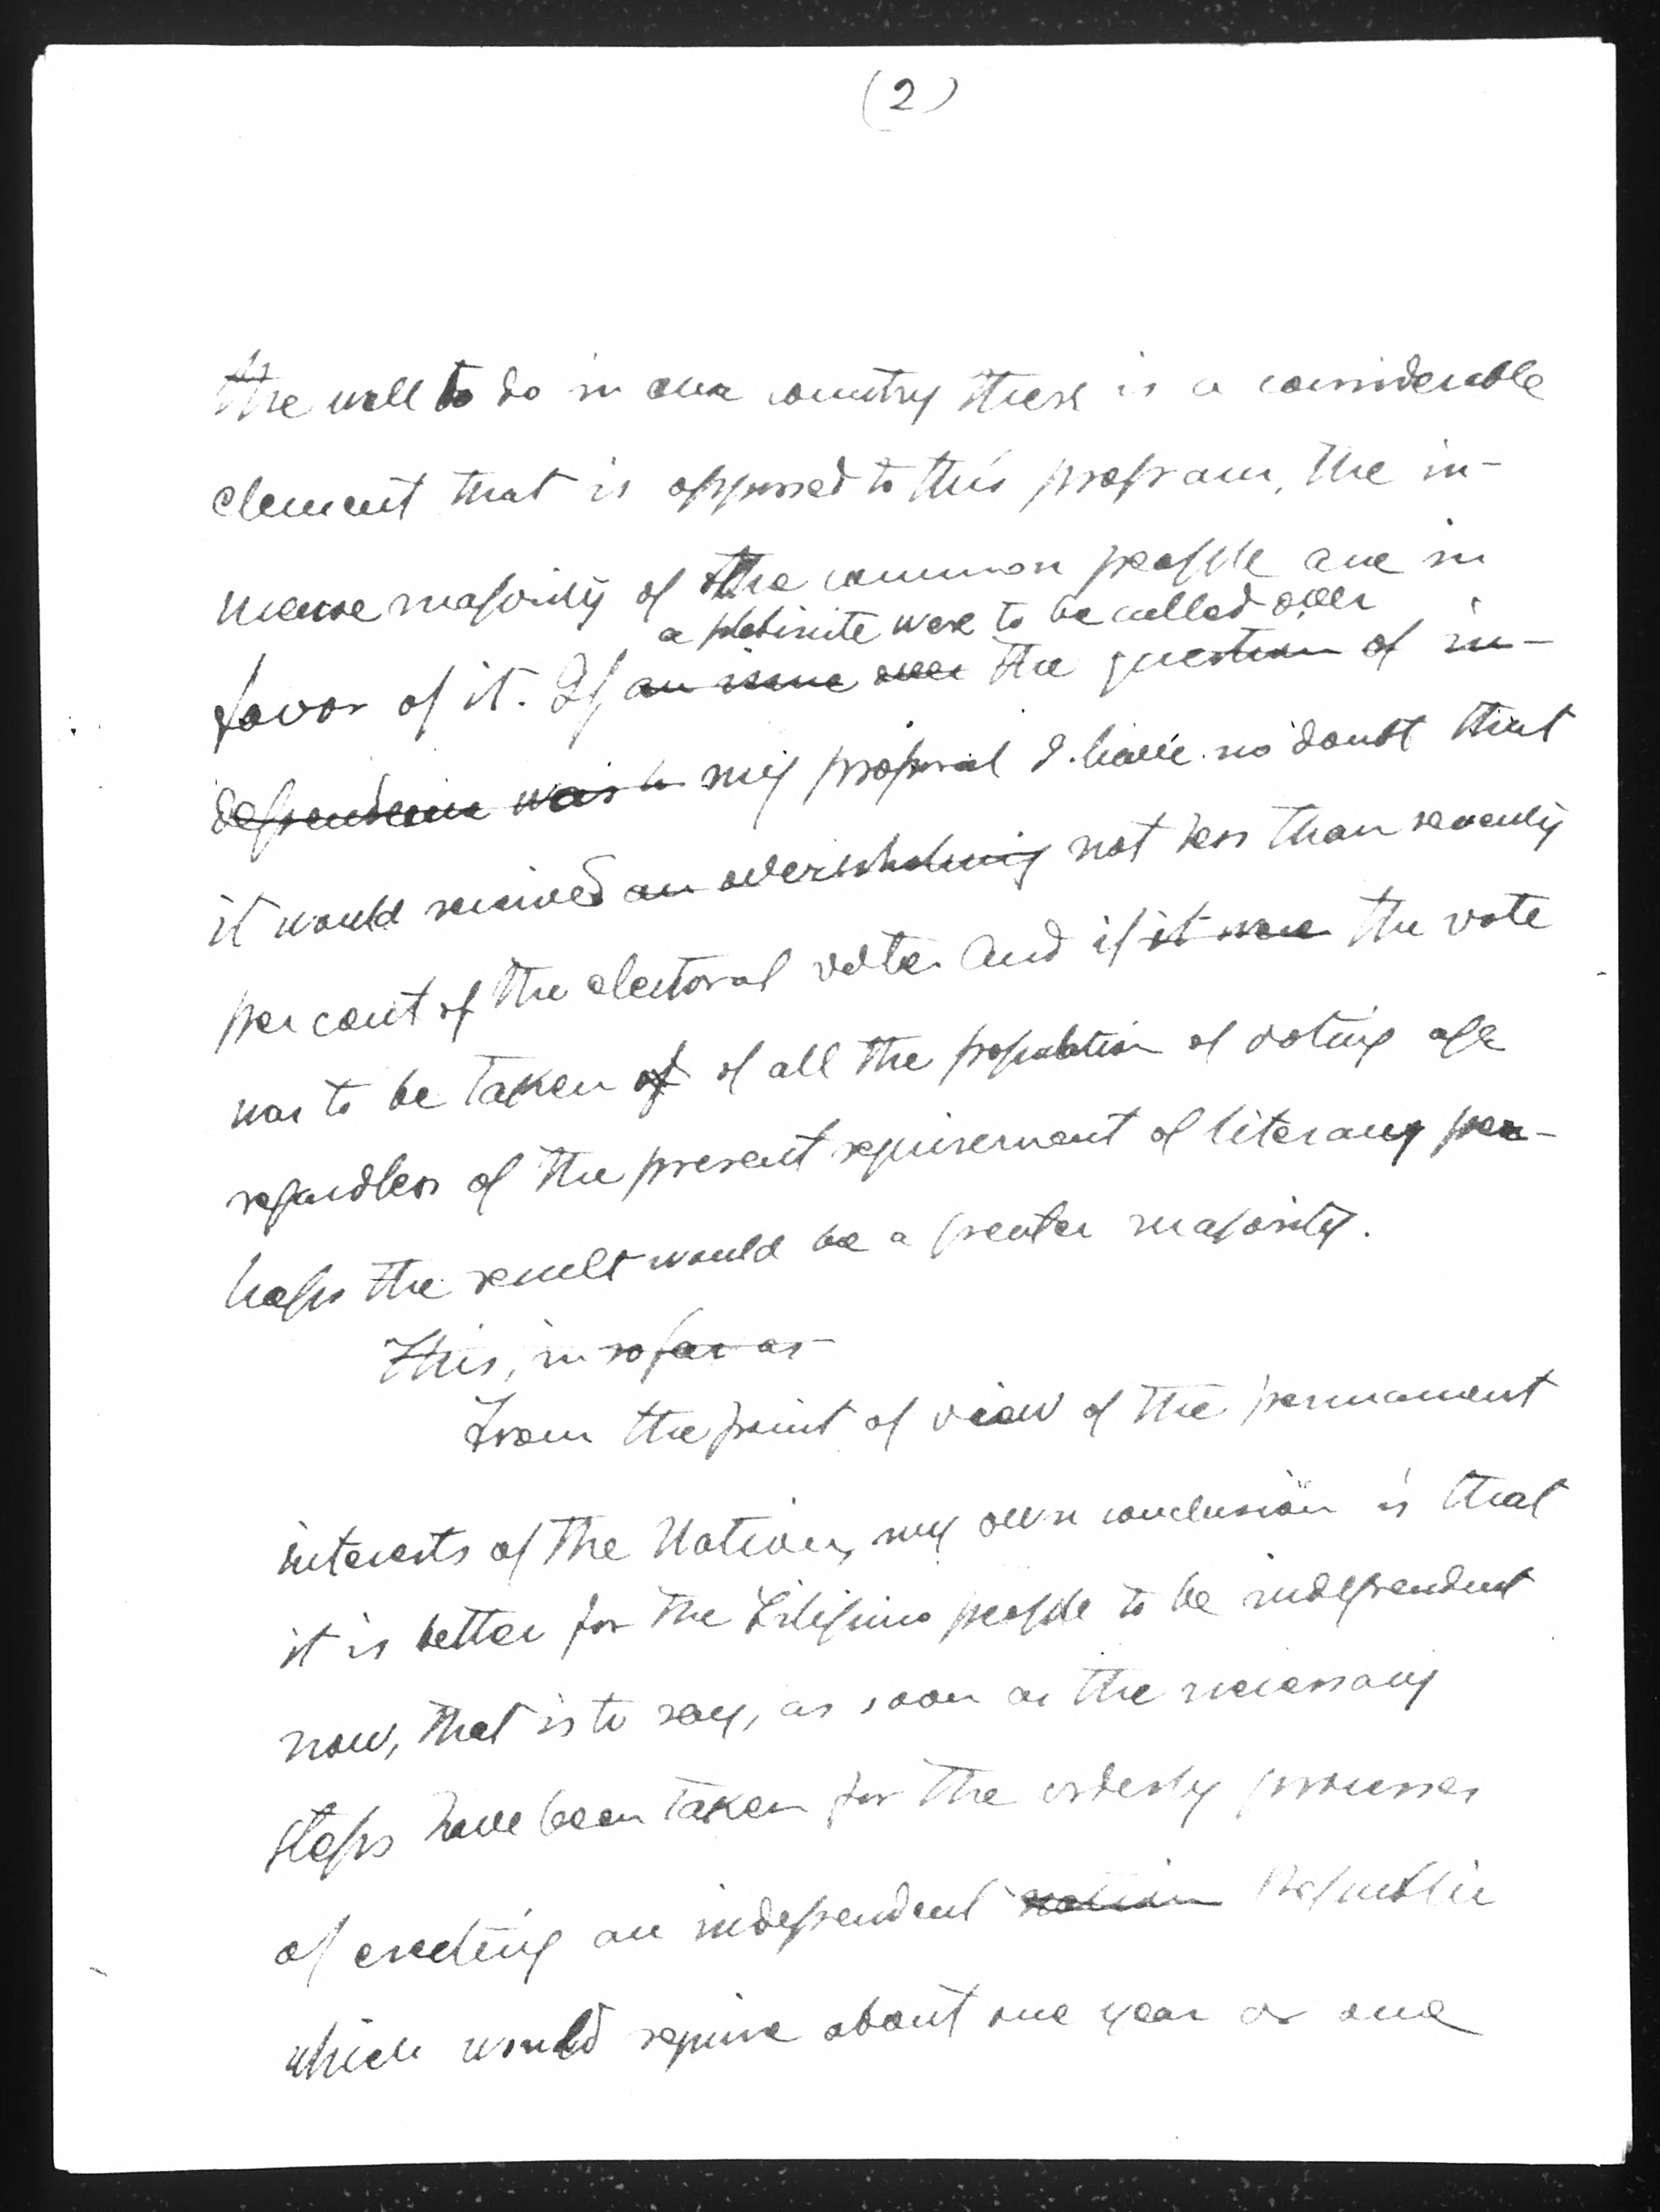 (2)
the well to do in our country there is a considerable
element that is opposed to this program, the in-
mense majority of the common people are in
a plebisite were to be called over
favor of it. If an issue over the question of in-
dependence was to my proposal I have no doubt that
it would received an overwhelming not less than seventy
per cent of the electoral vote. And if it were the vote
was to be taken of of all the population of voting age
regardless of the present requirement of literacy per-
haps the result would be a greater majority.
This, in so far as
From the point of view of the permanent
interests of the Nation, my own conclusion is that
it is better for the Filipino people to be independent
now, that is to say, as soon as the necessary
steps have been taken for the orderly processes
of erecting an independent nation Republic
which would require about one year or one